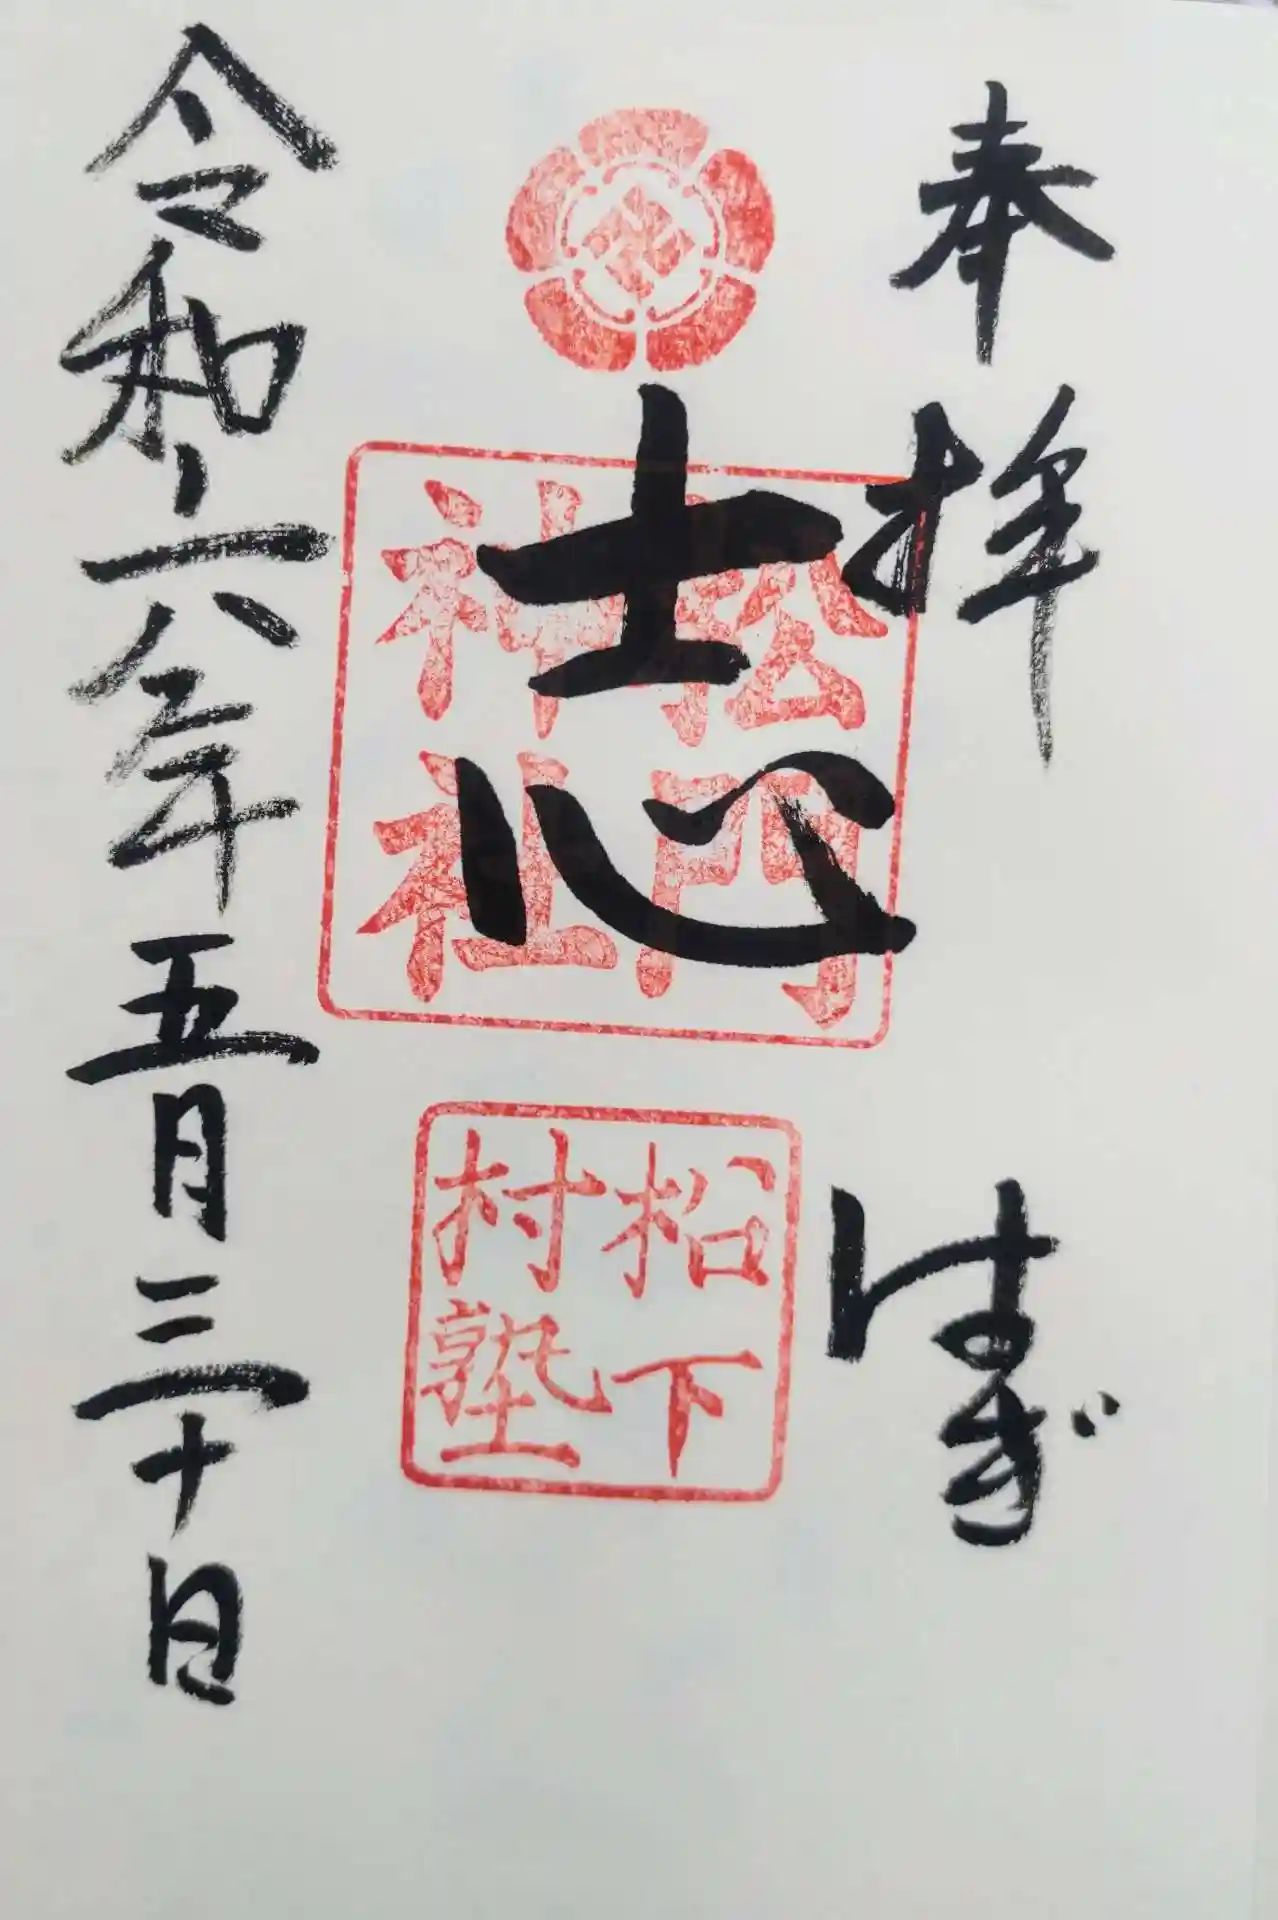 奉拝 はぎ
志
松門
神社
松下
村塾
令和六年五月三十日